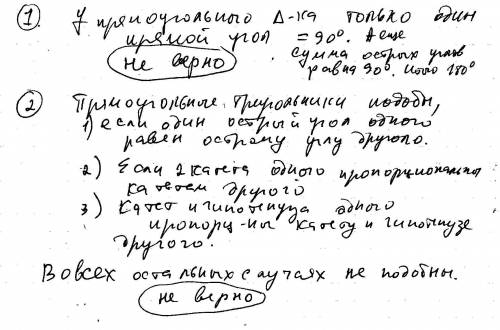 1. У прямоугольного Δ-ка только один
прямой угол = 90°. А еще
сумма острых углов
не верно
равна 90°. Итого 180°
2 Прямоугольные треугольники подобны,
1) если один острый угол одного
равен острому углу другого.
2) Если 2 катета одного пропорциональны
катетам другого
3) Катет и гипотенуза одного
пропорц-ны катету и гипотенузе
другого.
Во всех остальных случаях не подобны.
не верно